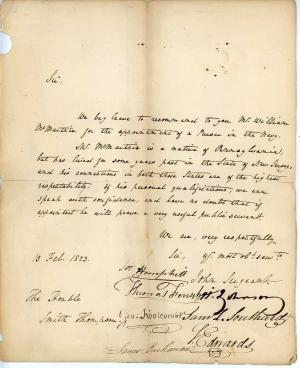 Sir,
We beg leave to recommend to you Mr. William
McMurtrie for the appointment of a Purser in the Navy.
Mr. McMurtrie is a native of Pennsylvania,
but has lived for some years past in the State of New Jersey,
and his connections in both those States are of the highest
respectability. Of his personal qualifications, we can
speak with confidence, and have no doubt that if
appointed he will prove a very useful public servant.
We are, very respectfully
Sir, yr. most ob. servts.
13 Feb. 1823.
Jos Hemphill
John Sergeant
Johnson
The Honble
Saml L. Southard
Smith Thompson
Geo: Holcombe
S Edwards
James Buchanan